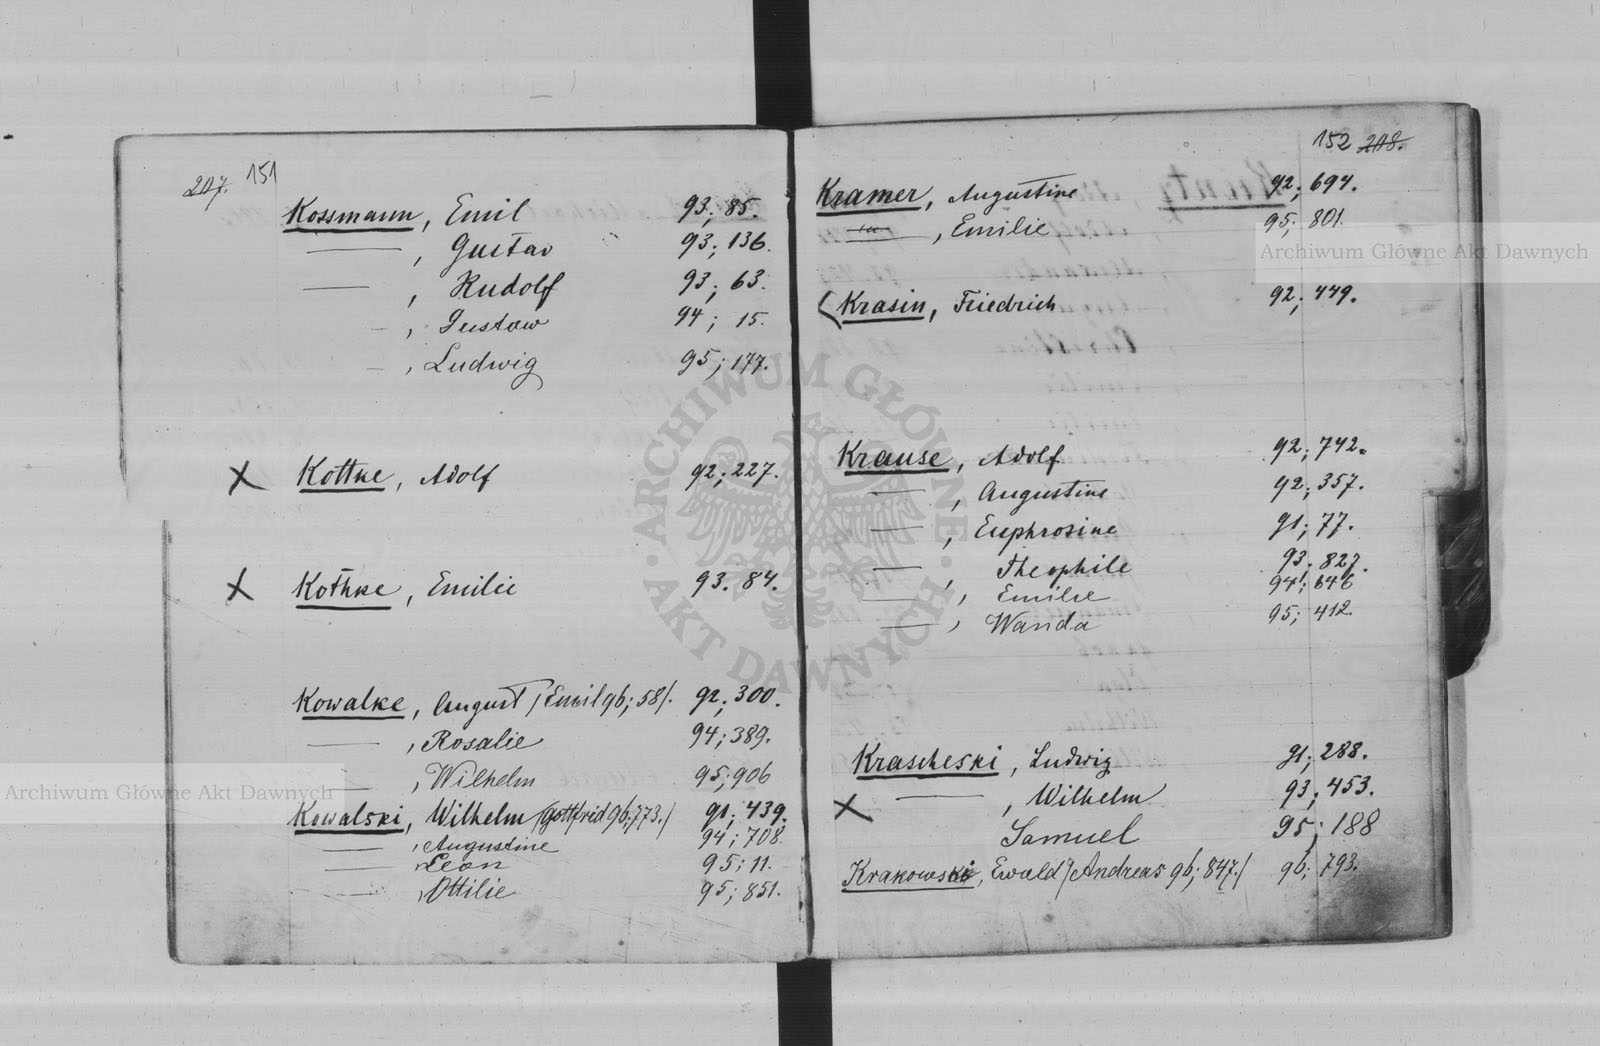 207. 151
Kossmann, Emil 93; 85.
—, Gustav 93; 136.
—, Rudolf 93; 63.
—, Gustaw 94; 15.
—, Ludwig 95; 177.
X Kottke, Adolf 92; 227.
X Kothke, Emilie 93. 84.
Kowalke, August /Emil 96; 58/. 92; 300.
—, Rosalie 94; 389.
—, Wilhelm 95; 906
Kowalski, Wilhelm /Gottfried 96; 773./ 91; 439.
—, Augustine 94; 708.
—, Leon 95; 11.
—, Ottilie 95; 851.
152 208.
Kramer, Augustine 92; 694.
—, Emilie 95; 801.
(Krasin, Friedrich 92; 449.
Krause, Adolf 92; 742.
—, Augustine 92; 357.
—, Euphrosine 91; 77.
—, Theophile 93. 827.
—, Emilie 94; 646
—, Wanda 95; 412.
Krascheski, Ludwig 91; 288.
X —, Wilhelm 93; 453.
Samuel 95; 188
Krakowski, Ewald /Andreas 96; 847./ 96; 793.
Archiwum Główne Akt Dawnych
Archiwum Główne Akt Dawnych
ARCHIWUM GŁÓWNE · AKT DAWNYCH ·